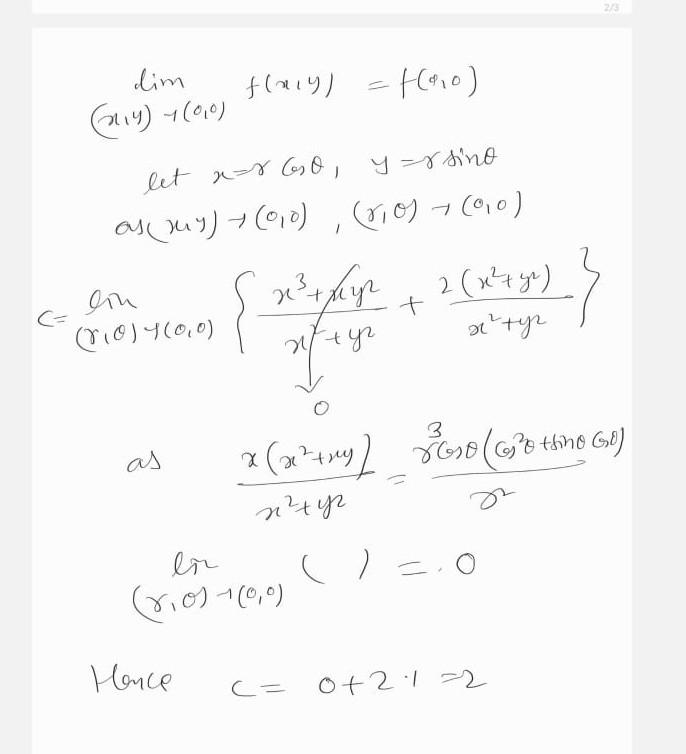 2/3
lim f(x,y) = f(0,0)
(x,y)→(0,0)
let x=r Cosθ, y=r sinθ
as (x,y) → (0,0), (r,θ) → (0,0)
c= lim { x³+xy² / x²+y² + 2(x²+y²) / x²+y² }
(r,θ)→(0,0)
↓
0
as x(x²+xy) / x²+y² = r³Cosθ(Cos²θ+sinθ Cosθ) / r²
lim ( ) = 0
(r,θ)→(0,0)
Hence c= 0+2·1 =2